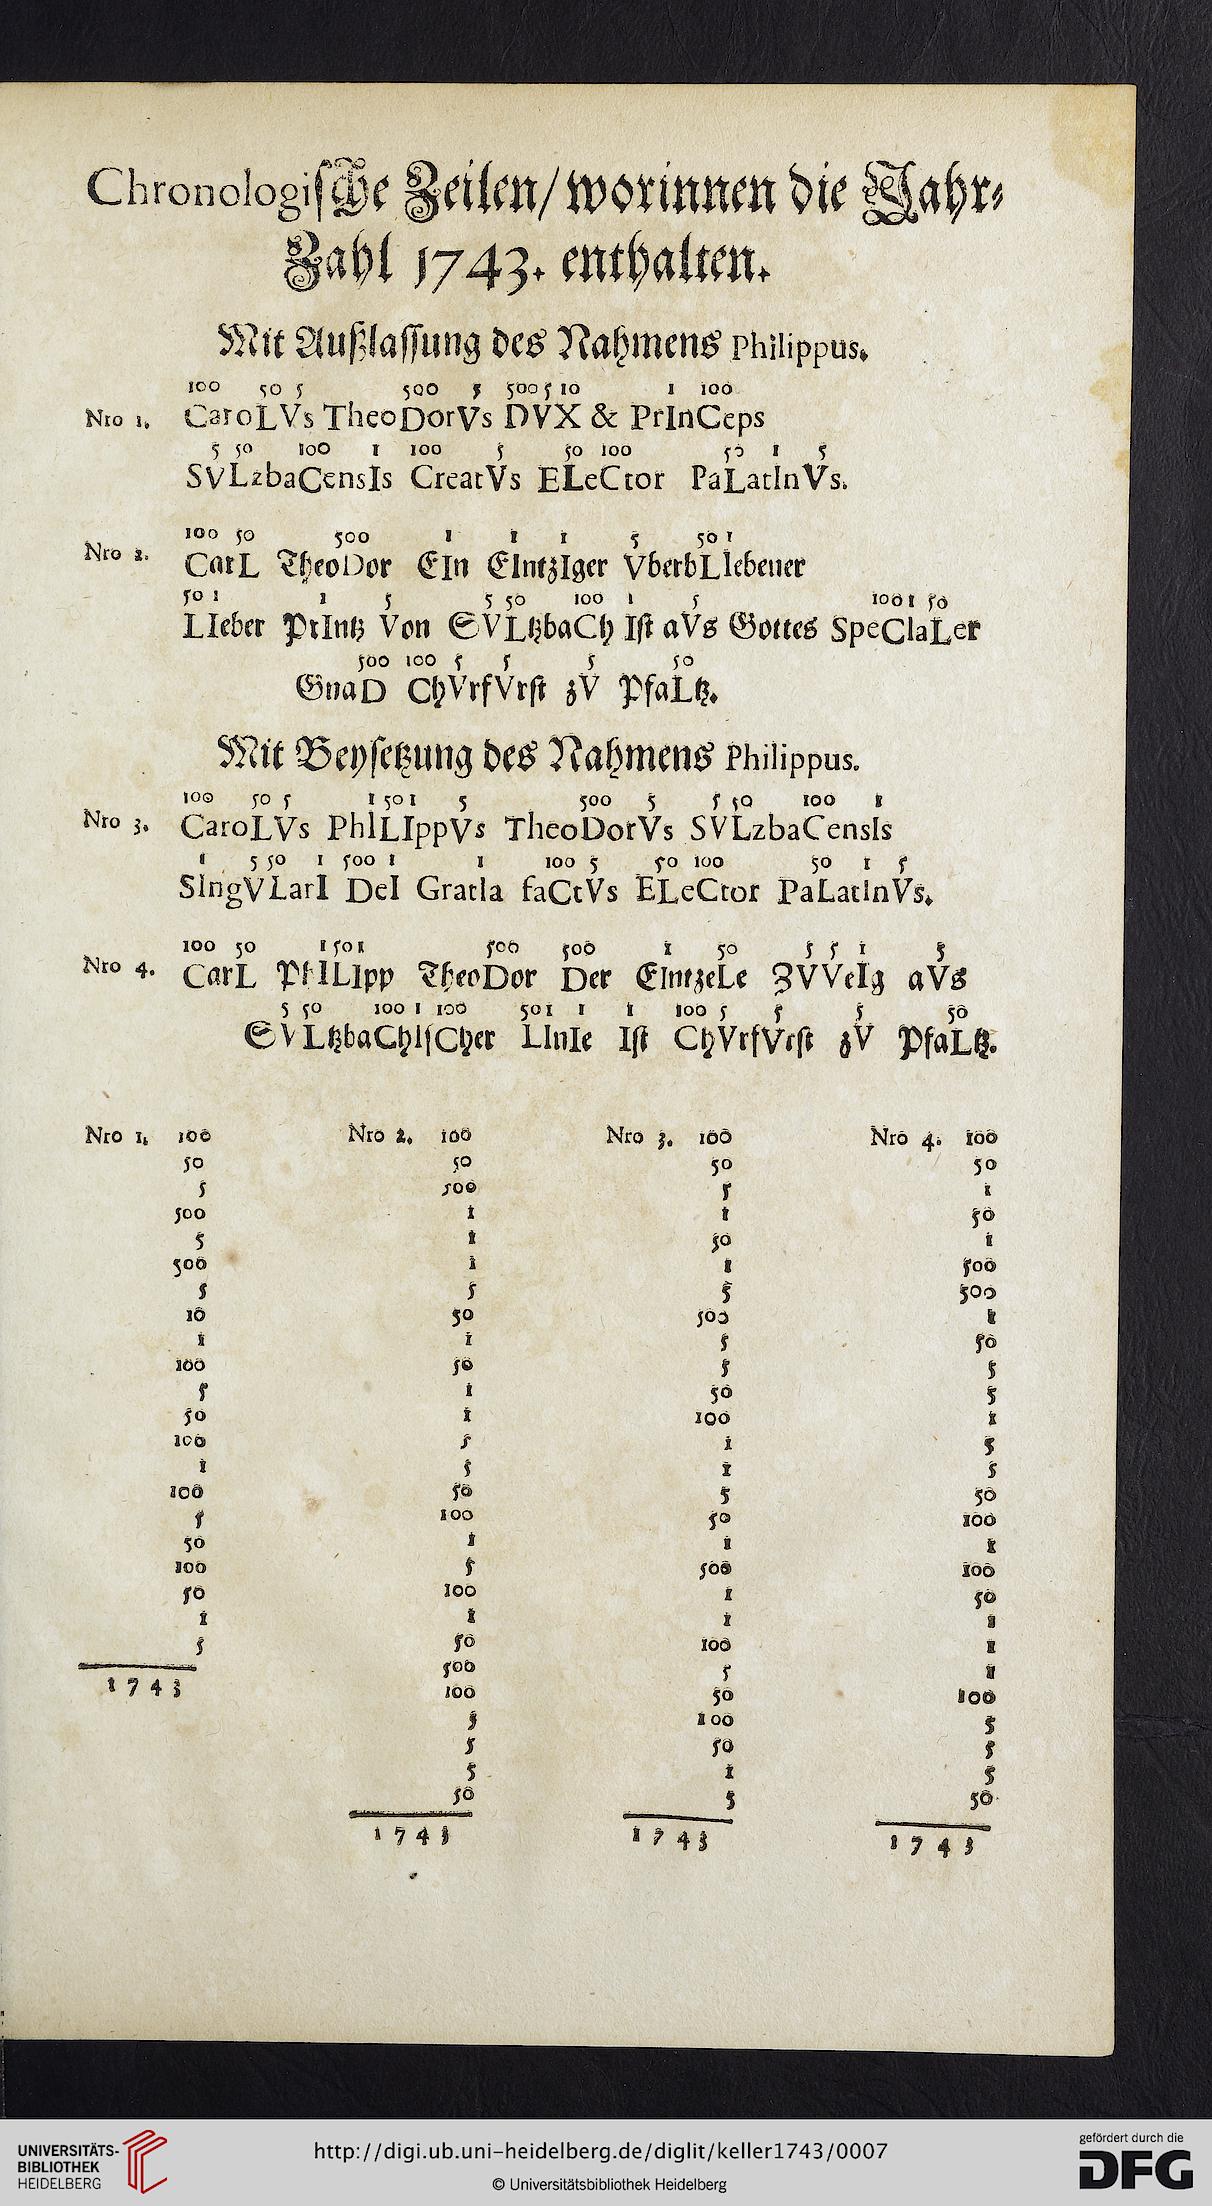 Chronologische Zeilen/ worinnen die Jahr-
Zahl 1743. enthalten.
Mit Außlassung des Nahmens Philippus.
100 50 5 500 5 500 5 10 1 100
Nro 1. CaroLVs TheoDorVs DVX & PrInCeps
5 50 100 1 100 5 50 100 50 1 5
SVLzbaCensIs CreatVs ELeCtor PaLatInVs.
100 50 500 1 1 1 5 50 1
Nro 2. CarL TheoDor EIn EIntzIger VberbLIebener
50 1 1 5 5 50 100 1 5 100 1 50
LIeber PrIntz Von SVLtzbaCh Ist aVs Gottes SpeCIaLer
500 100 5 5 5 50
GnaD ChVrfVrst zV PfaLtz.
Mit Beysetzung des Nahmens Philippus.
100 50 5 1 50 1 5 500 5 5 50 100 1
Nro 3. CaroLVs PhILIppVs TheoDorVs SVLzbaCensIs
1 5 50 1 500 1 1 100 5 50 100 50 1 5
SIngVLarI DeI GratIa faCtVs ELeCtor PaLatInVs.
100 50 1 50 1 500 500 1 50 5 5 1 5
Nro 4. CarL PhILIpp TheoDor Der EIntzeLe ZVVeIg aVs
5 50 100 1 100 50 1 1 1 100 5 5 5 50
SVLtzbaChIsCher LInIe Ist ChVrfVrst zV PfaLtz.
Nro 1. 100
50
5
500
5
500
5
10
1
100
5
50
100
1
100
5
50
100
50
1
5
1743
Nro 2. 100
50
500
1
1
1
5
50
1
50
1
1
5
5
50
100
1
5
100
1
50
500
100
5
5
5
50
1743
Nro 3. 100
50
5
1
50
1
5
500
5
5
50
100
1
1
5
50
1
500
1
1
100
5
50
100
50
1
5
1743
Nro 4. 100
50
1
50
1
500
500
1
50
5
5
1
5
5
50
100
1
100
50
1
1
1
100
5
5
5
50
1743
UNIVERSITÄTS-
BIBLIOTHEK
HEIDELBERG
http://digi.ub.uni-heidelberg.de/diglit/keller1743/0007
© Universitätsbibliothek Heidelberg
gefördert durch die
DFG